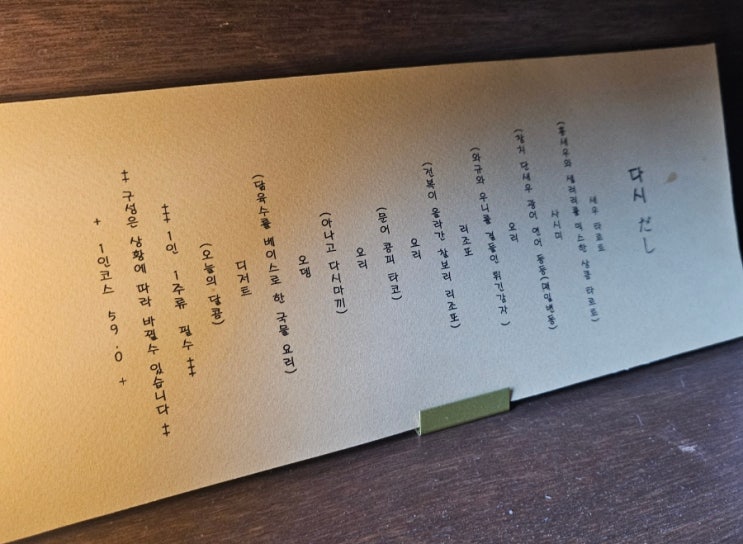 다시 だし
새우 타르트
(홍새우와 셀러리를 믹스한 상콤 타르트)
사시미
(참치 단새우 광어 연어 등등(매일변동)
요리
(와규와 우니를 곁들인 튀긴감자)
리조또
(전복이 올라간 찰보리 리조또)
요리
(문어 콩피 타코)
요리
(아나고 다시마끼)
오뎅
(닭육수를 베이스로 한 국물 요리)
디저트
(오늘의 달콤)
‡‡ 1인 1주류 필수 ‡‡
‡ 구성은 상황에 따라 바뀔수 있습니다 ‡
+ 1인코스 59.0 +